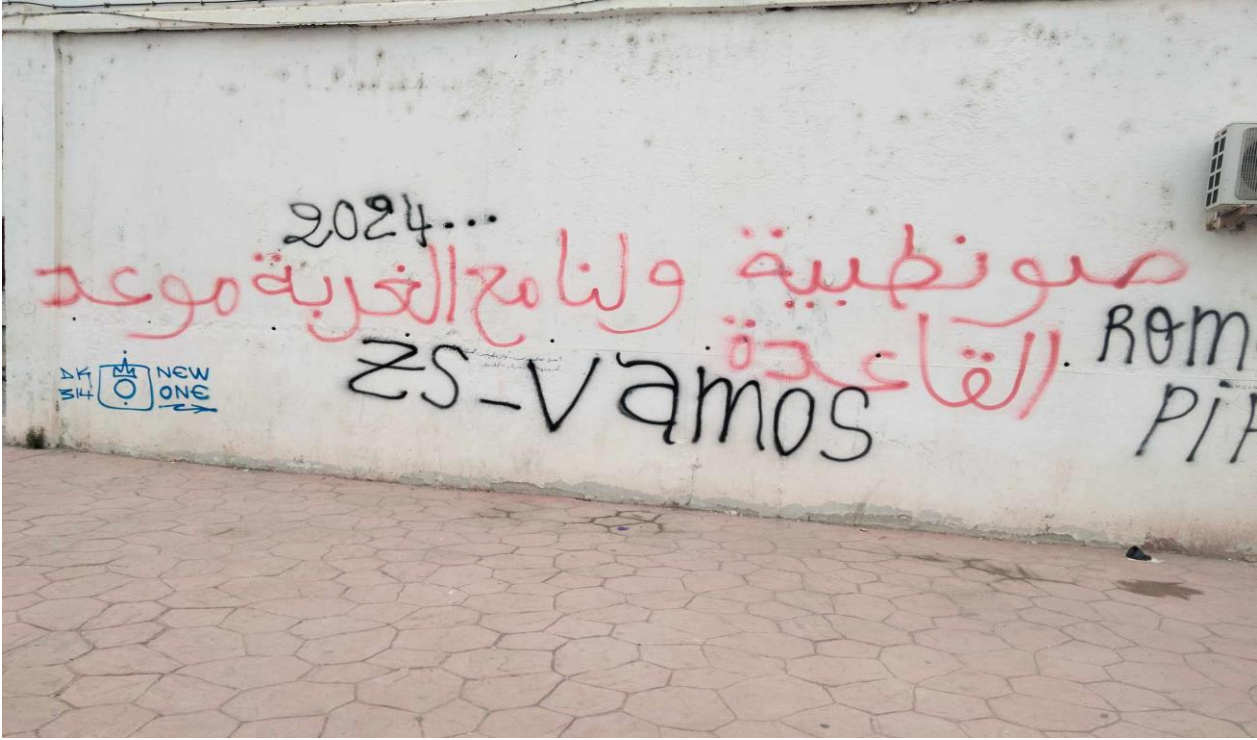 2024...
صونطبية ولنا مع الغربة موعد
القاعدة
ZS_Vamos
ROM
PIP
DK
314
NEW
ONE